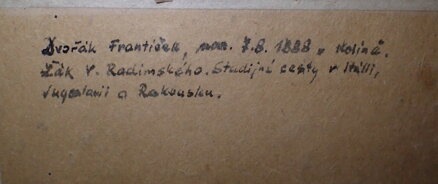 Dvořák František, nar. 7.8. 1888 v Kolíně.
Žák V. Radimského. Studijní cesty v Itálii,
Jugoslavii a Rakousku.